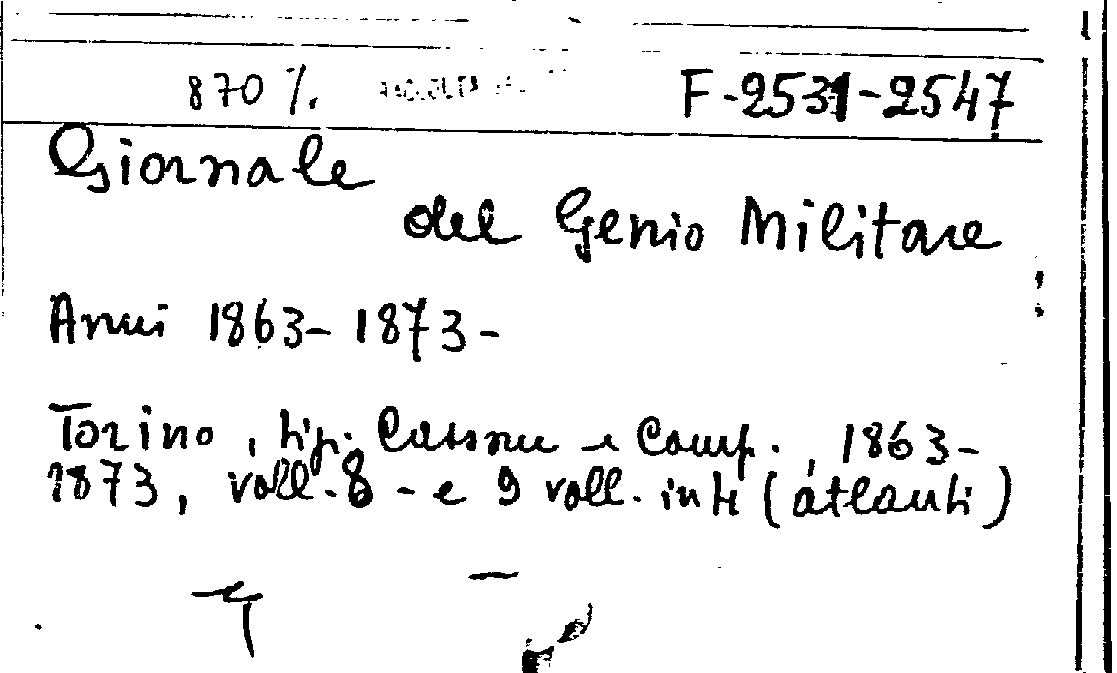 870 /. F-2531-2547
Giornale
del Genio Militare
Anni 1863-1873-
Torino, tip. Cassone e Comp., 1863-
1873, voll. 8 - e 9 voll. in 4 (atlanti)